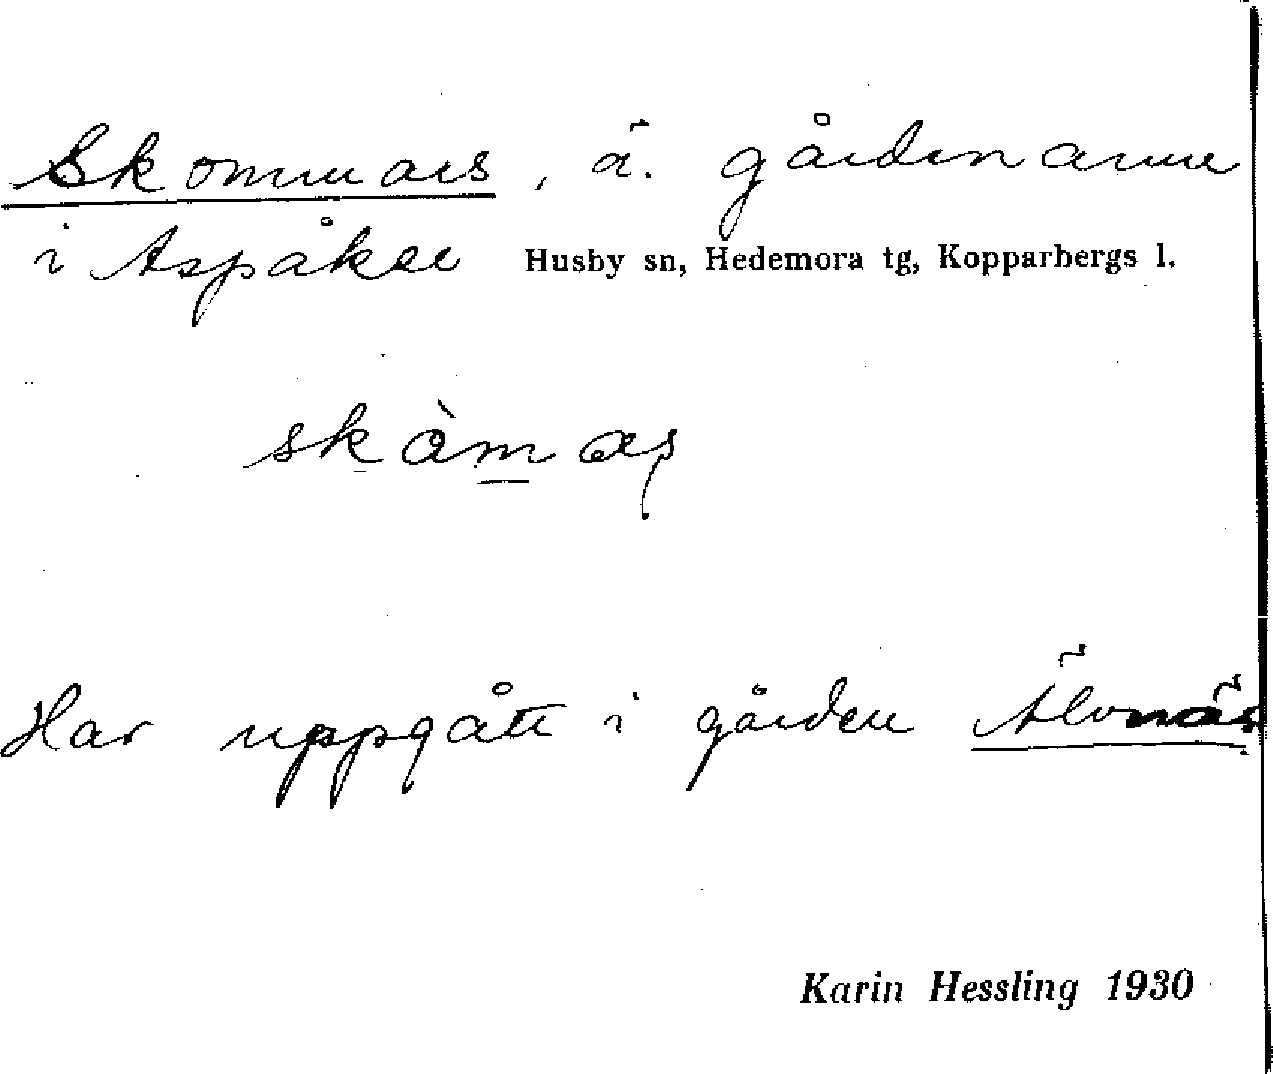 Skommars, ä. gårdsnamn
i Aspåker Husby sn, Hedemora tg, Kopparbergs l.
skòmas
Har uppgått i gården Älvnäs
Karin Hessling 1930